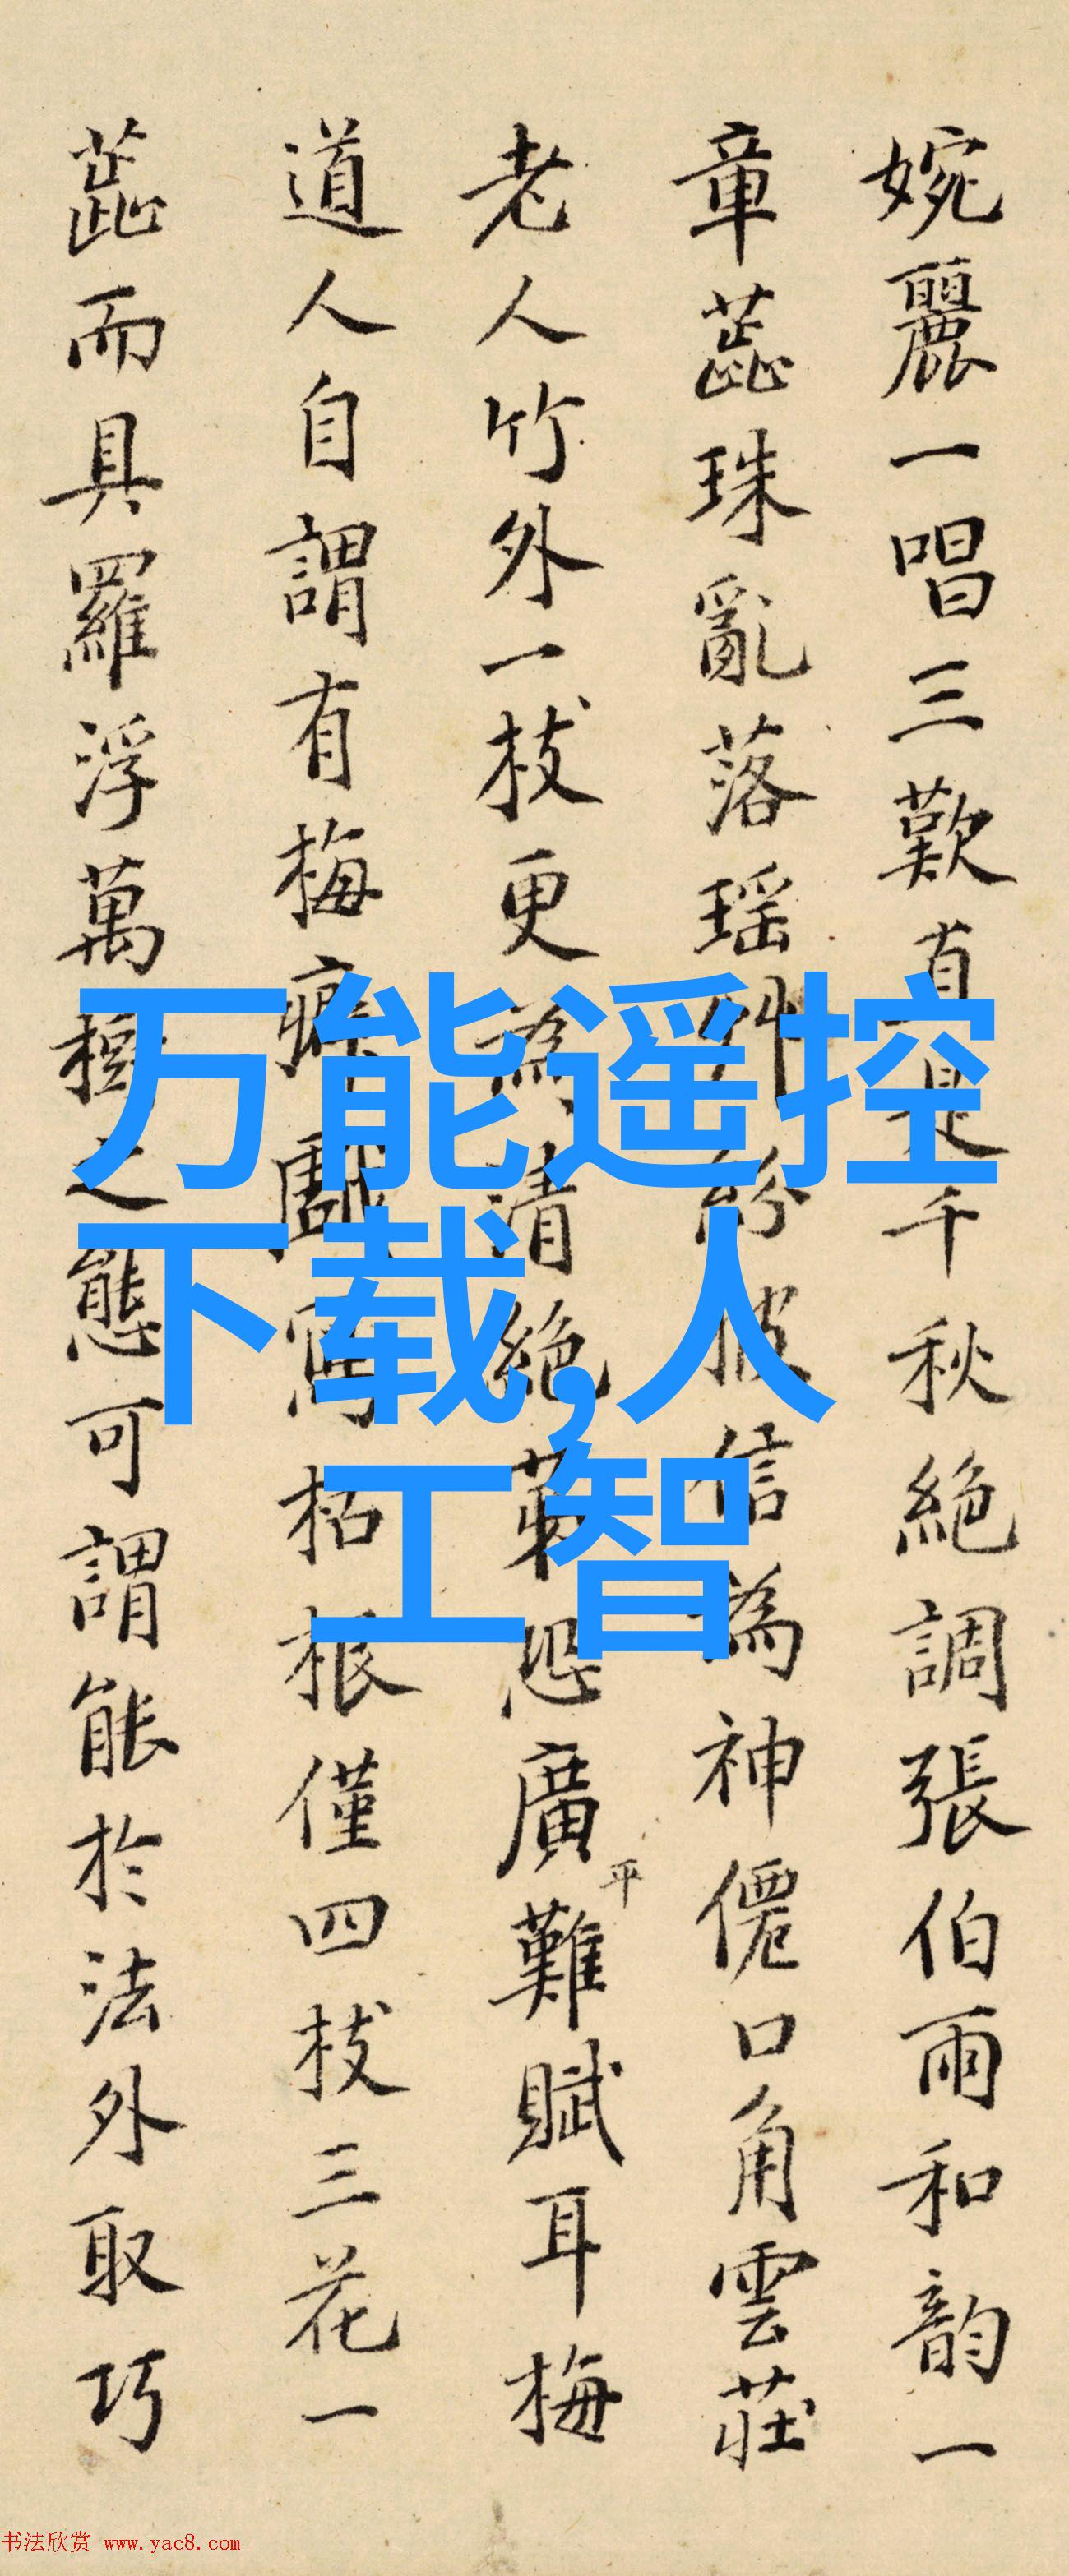 婉麗一唱三歎真是千秋絕調張伯雨和韵一
章蕋珠亂落瑶 紛披信為神僊口角雲莊
老人竹外一枝更為清絕 恐廣平難賦耳梅
道人自謂有梅癖 寫枯根僅四枝三花一
蕋而具羅浮萬樹之態可謂能於法外取巧
万能遥控
下载,人
工智
书法欣赏 www.yac8.com